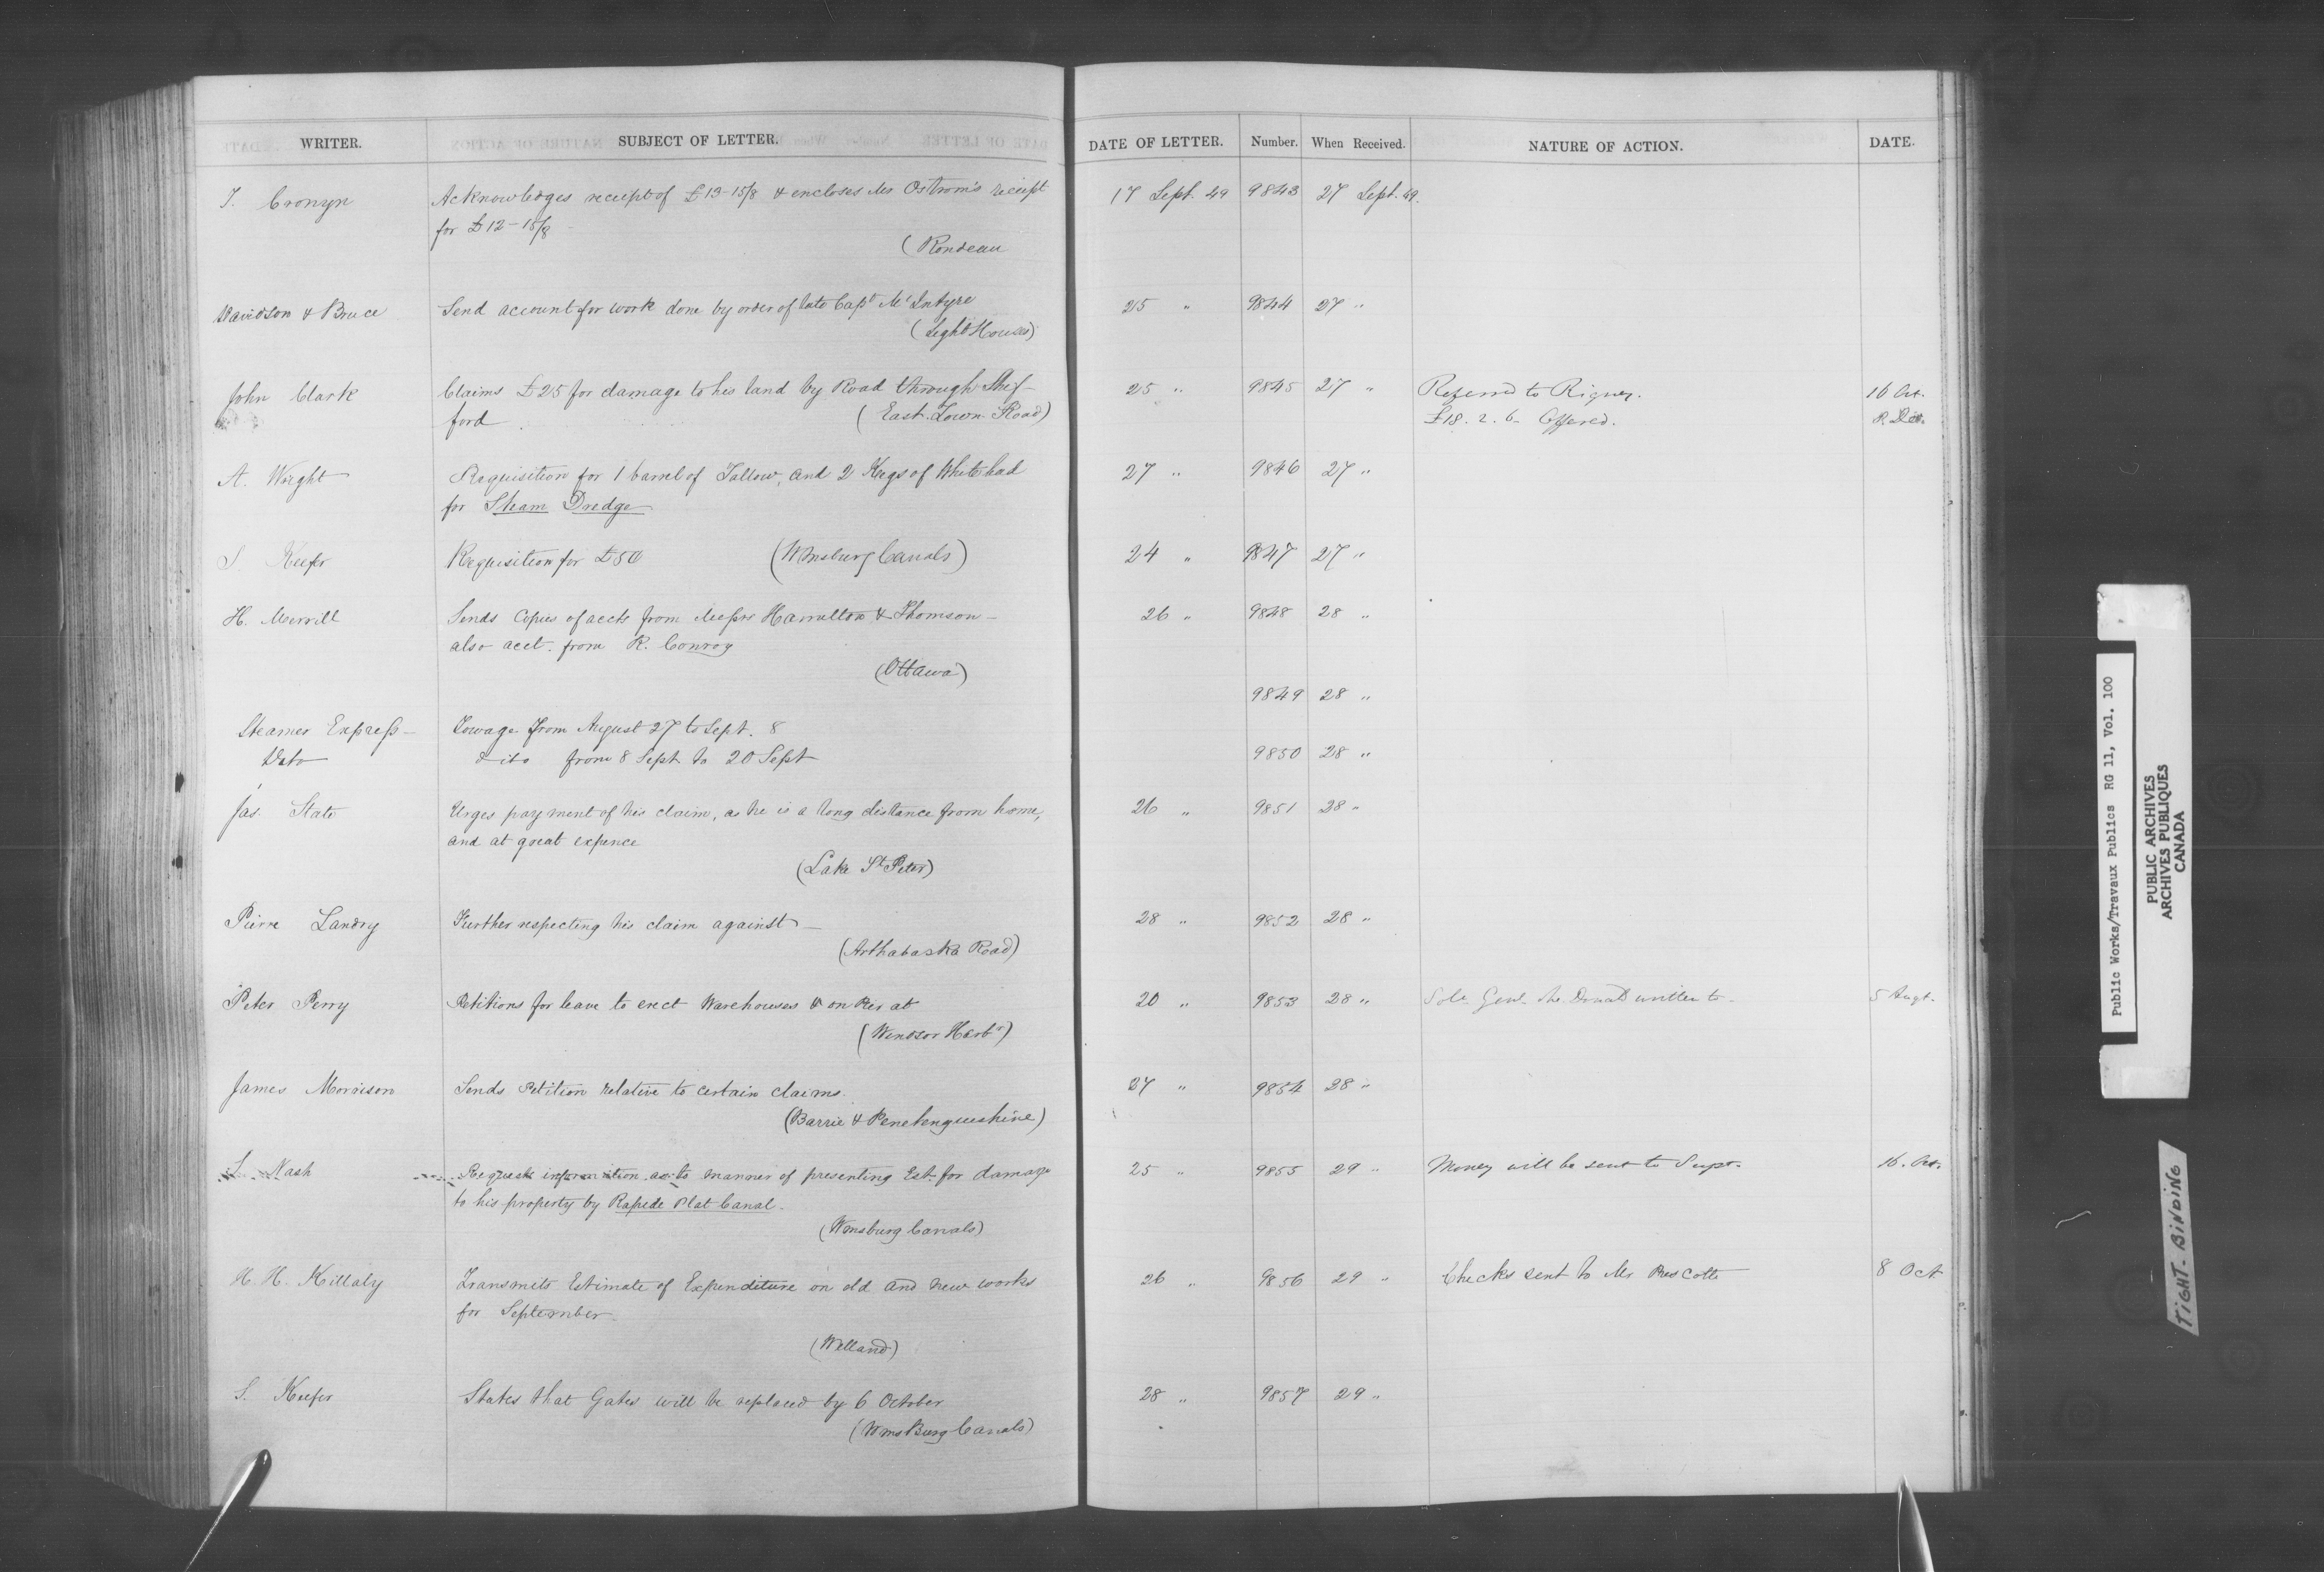 WRITER. SUBJECT OF LETTER. DATE OF LETTER. Number. When Received. NATURE OF ACTION. DATE.
T. Cronyn Acknowledges receipt of £13-15/8 & encloses Mr Ostrom's receipt 17 Sept. 49 9843 27 Sept. 49.
for £12-15/8
(Rondeau
Davidson & Bruce Send account for work done by order of late Capt McIntyre 25 " 9844 27 "
(Light Houses)
John Clark Claims £25 for damage to his land by Road through Shef- 25 " 9845 27 " Referred to Rigney. 16 Oct.
ford (East. Town. Road) £18. 2. 6 Offered.
A. Wright Requisition for 1 barrel of Tallow, and 2 Kegs of White lead 27 " 9846 27 "
for Steam Dredge
S. Keefer Requisition for £50 (Wmsburg Canals) 24 " 9847 27 "
H. Merrill Sends Copies of accts from Messrs Hamilton & Thomson - 26 " 9848 28 "
also acct. from R. Conroy
(Ottawa)
9849 28 "
Steamer Express - Towage from August 27 to Sept. 8
Ditto ditto from 8 Sept to 20 Sept 9850 28 "
Jas. State Urges payment of his claim, as he is a long distance from home, 26 " 9851 28 "
and at great expence
(Lake St Peter)
Pierre Landry Further respecting his claim against - 28 " 9852 28 "
(Arthabaska Road)
Peter Perry Petitions for leave to erect Warehouses & on Pier at 20 " 9853 28 " written to 5 Augt.
(Windsor Harbr)
James Morrison Sends Petition relative to certain claims. 27 " 9854 28 "
(Barrie & Penetenguishine)
Nash Requests information as to manner of presenting Est. for damage 25 " 9855 29 " Money will be sent to Supt. 16. Oct.
to his property by Rapide Plat Canal.
(Wmsburg Canals)
H. H. Killaly Transmits Estimate of Expenditure on old and new works 26 " 9856 29 " Checks sent to Mr Prescott 8 Oct
for September.
(Welland)
S. Keefer States that Gates will be replaced by 6 October 28 " 9857 29 "
(WmsBurg Canals)
Public Works/Travaux Publics RG 11, Vol. 100
PUBLIC ARCHIVES
ARCHIVES PUBLIQUES
CANADA
TIGHT-BINDING